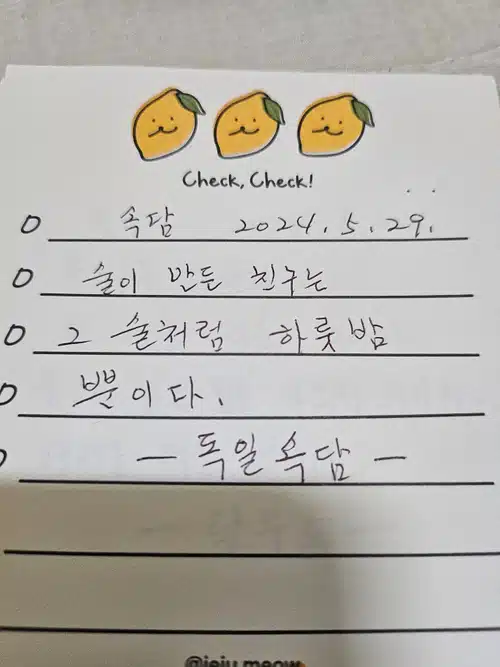 Check, Check!
속담 2024.5.29.
술이 만든 친구는
그 술처럼 하룻밤
뿐이다.
- 독일속담 -
@jeju.meow